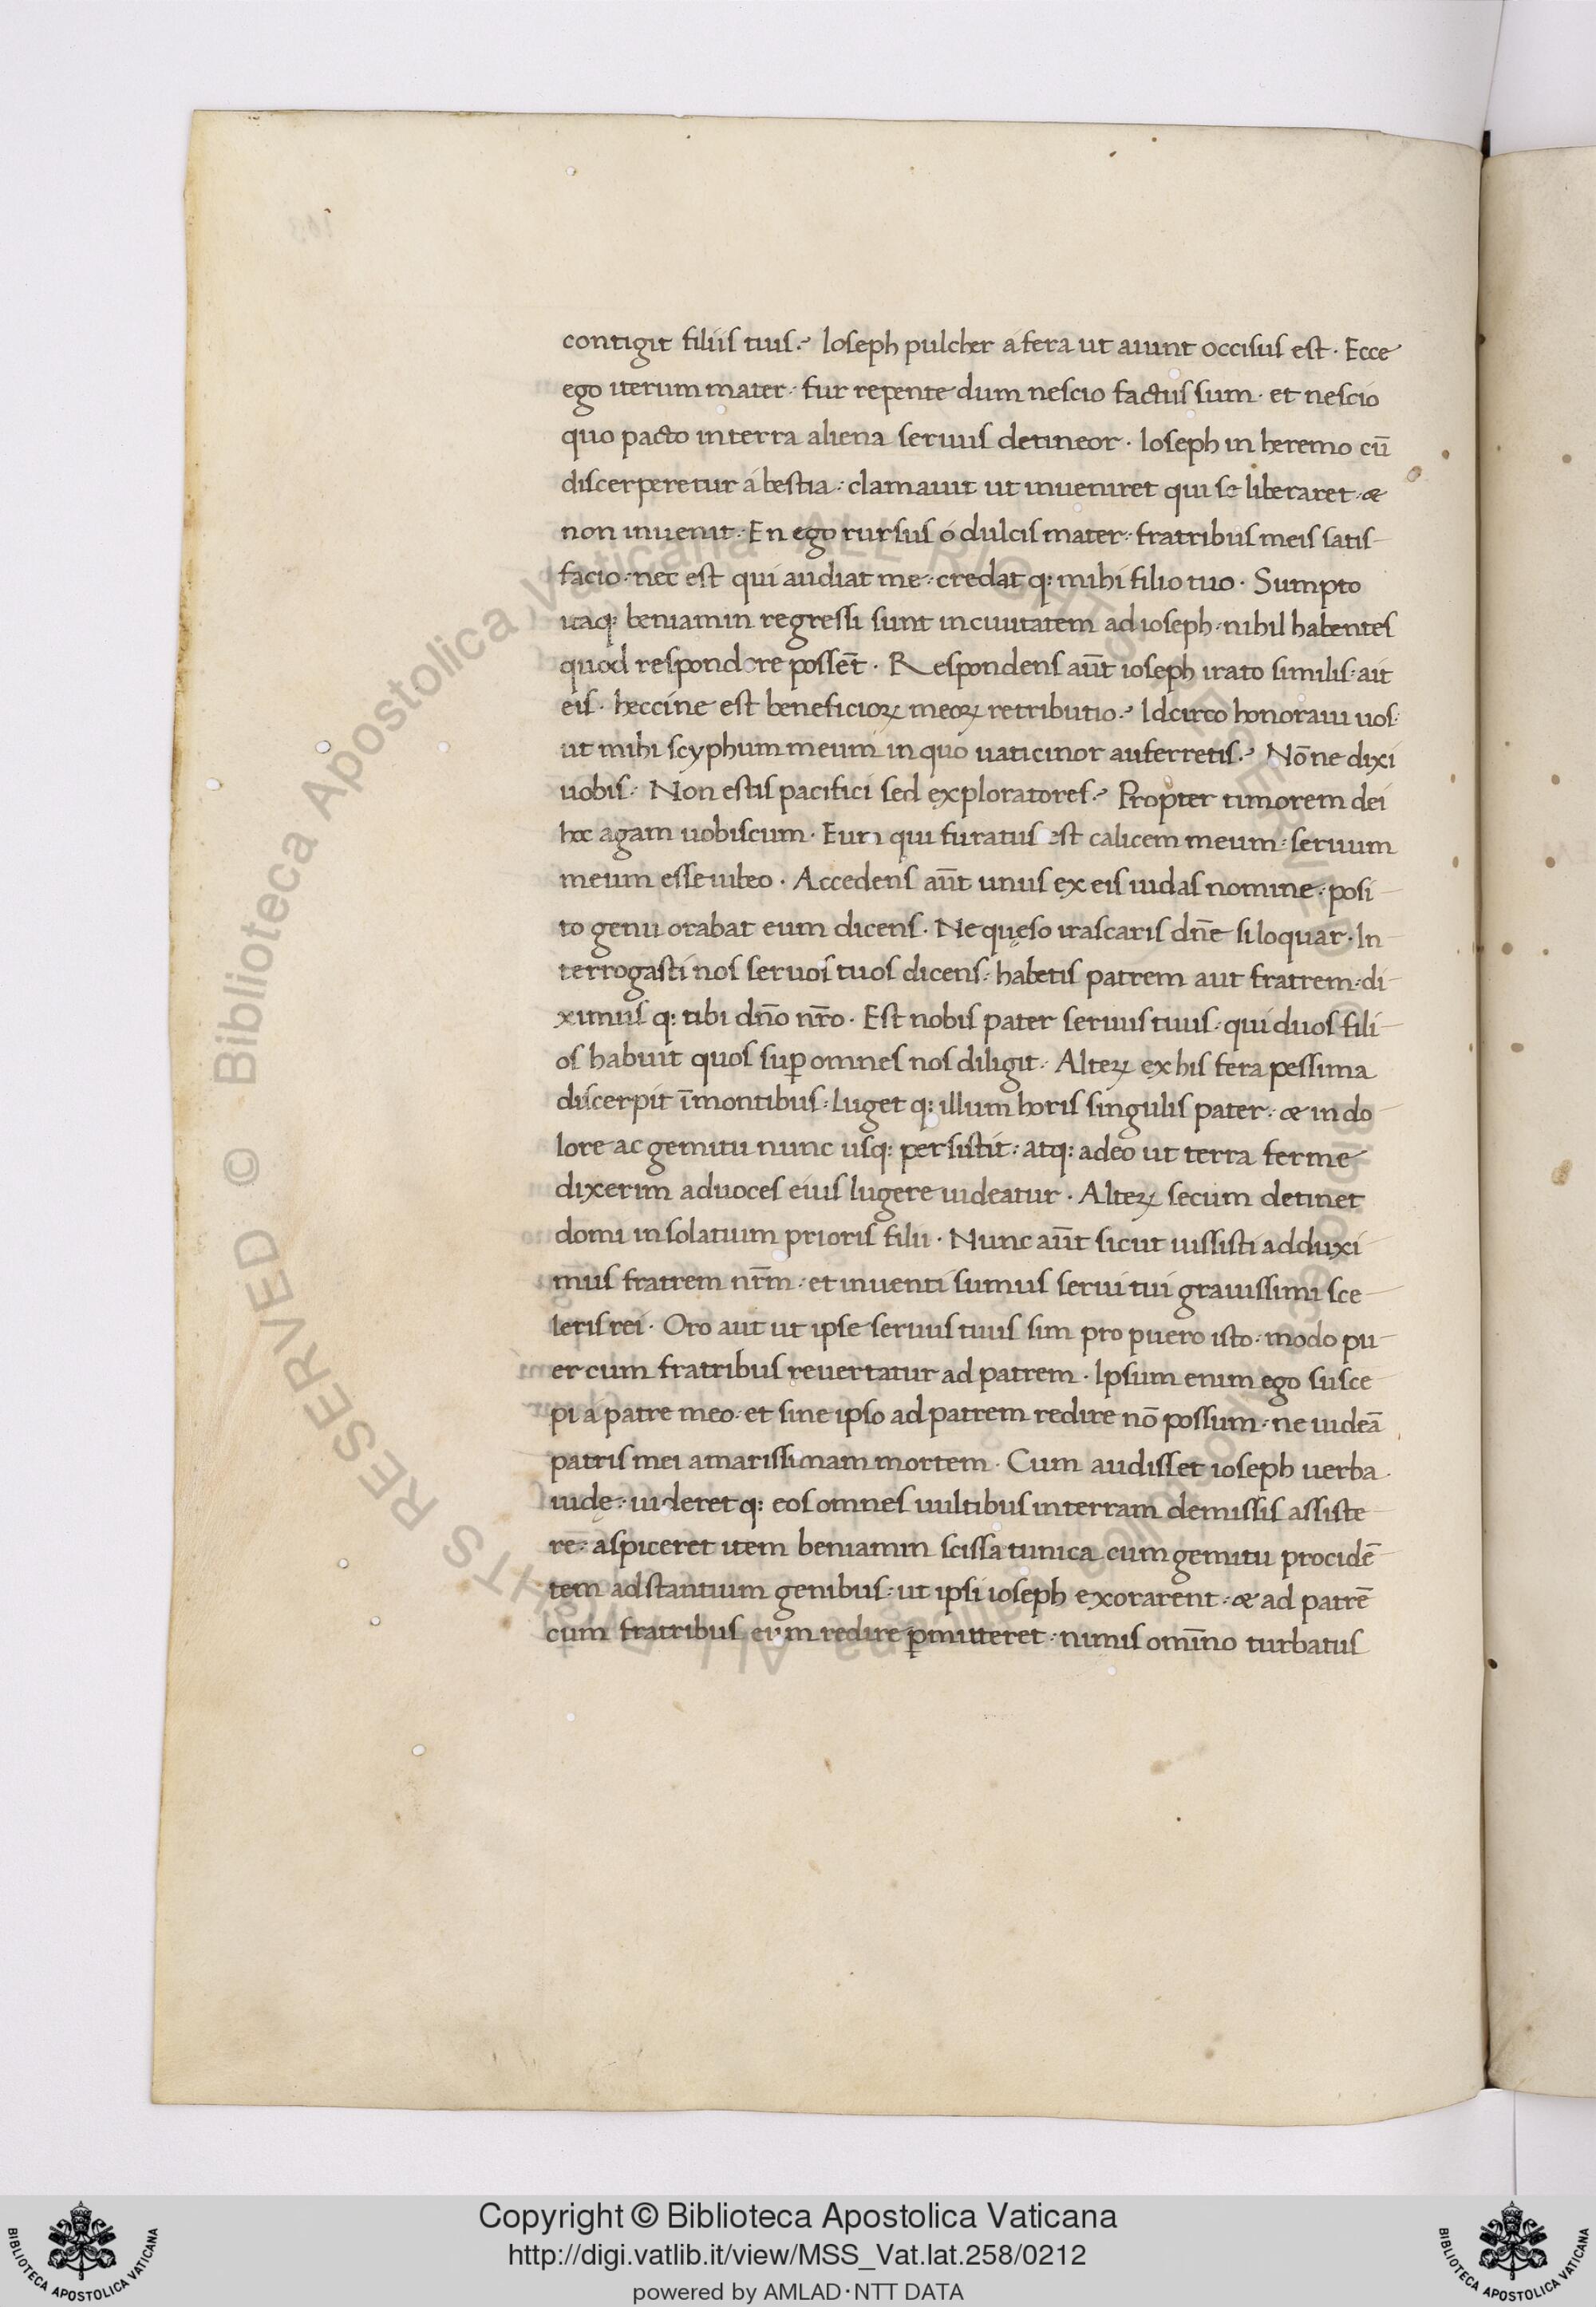 contigit filiis tuis? Ioseph pulcher á fera ut aiunt occisus est · Ecce
ego iterum mater · fur repente dum nescio factus sum · et nescio
quo pacto in terra aliena seruus detineor · Ioseph in heremo cū
discerperetur á bestia · clamauit ut inueniret qui se liberaret · &
non inuenit · En ego rursus ó dulcis mater · fratribus meis satis-
facio · nec est qui audiat me · credat q: mihi filio tuo · Sumpto
itaq: beniamin regressi sunt in ciuitatem ad ioseph · nihil habentes
quod respondere possēt · Respondens aūt ioseph irato similis · ait
eis · heccine est beneficioꝝ meoꝝ retributio? Idcirco honoraui uos ·
ut mihi scyphum meum in quo uaticinor auferretis? Nōne dixi
uobis · Non estis pacifici sed exploratores? Propter timorem dei
hoc agam uobiscum · Eum qui furatus est calicem meum · seruum
meum esse iubeo · Accedens aūt unus ex eis iudas nomine · posi-
to genu orabat eum dicens · Ne quęso irascaris dn̄e si loquar · In-
terrogasti nos seruos tuos dicens · habetis patrem aut fratrem · di-
ximus q: tibi dn̄o nr̄o · Est nobis pater seruus tuus · qui duos fili-
os habuit quos suꝑ omnes nos diligit · Alteꝝ ex his fera pessima
discerpit ī montibus · luget q: illum horis singulis pater · & in do-
lore ac gemitu nunc usq: persistit · atq: adeo ut terra ferme
dixerim ad uoces eius lugere uideatur · Alteꝝ secum detinet
domi in solatium prioris filii · Nunc aūt sicut iussisti adduxi-
mus fratrem nr̄m · et inuenti sumus serui tui grauissimi sce-
leris rei · Oro aut ut ipse seruus tuus sim pro puero isto · modo pu-
er cum fratribus reuertatur ad patrem · Ipsum enim ego susce-
pi á patre meo · et sine ipso ad patrem redire nō possum · ne uideā
patris mei amarissimam mortem · Cum audisset ioseph uerba
iudę · uideret q: eos omnes uultibus in terram demissis assiste-
re · aspiceret item beniamin scissa tunica cum gemitu procidē-
tem adstantium genibus · ut ipsi ioseph exorarent · & ad patrē
cum fratribus eum redire ꝑmitteret · nimis omīno turbatus
© Biblioteca Apostolica Vaticana ALL RIGHTS RESERVED
© Biblioteca Apostolica Vaticana ALL RIGHTS RESERVED
Copyright © Biblioteca Apostolica Vaticana
http://digi.vatlib.it/view/MSS_Vat.lat.258/0212
powered by AMLAD · NTT DATA
BIBLIOTECA APOSTOLICA VATICANA
BIBLIOTECA APOSTOLICA VATICANA